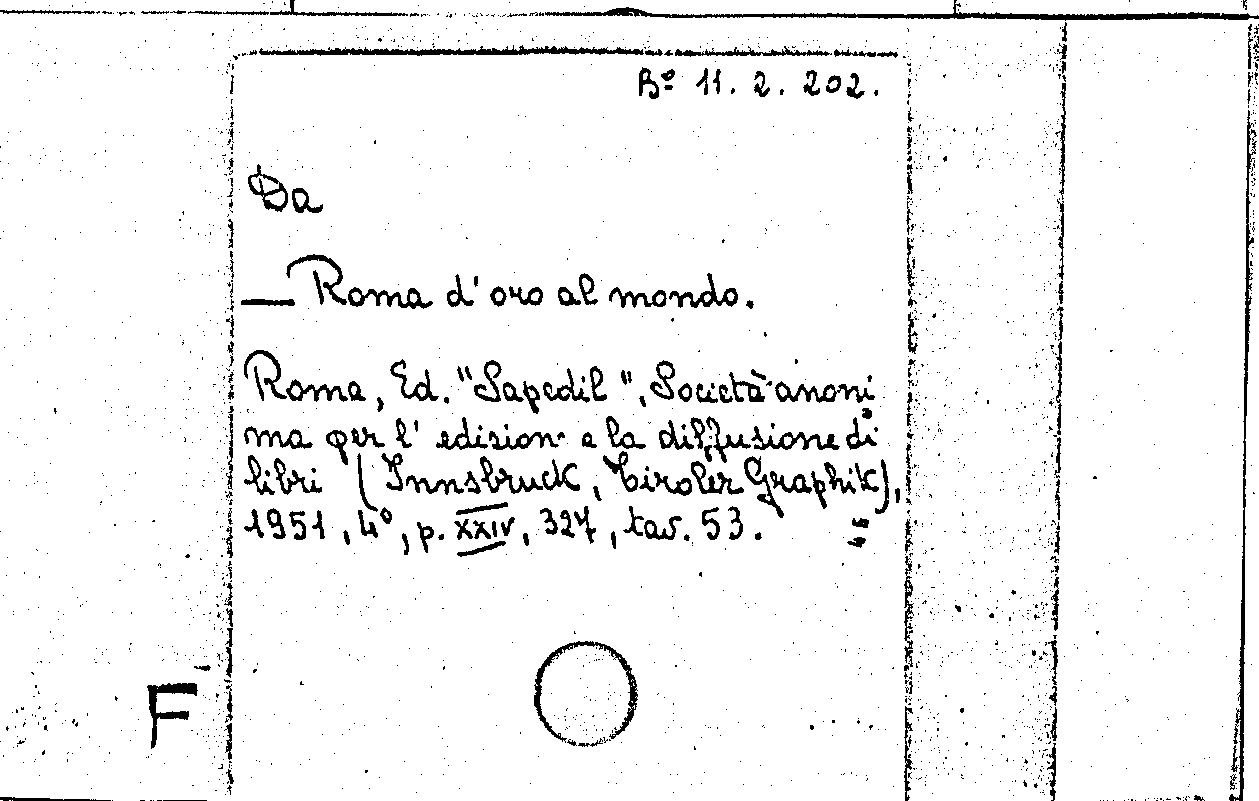 Bº 11. 2. 202.
Da
— Roma d'oro al mondo.
Roma, Ed. "Sapedil", Società anoni
ma per l'edizion e la diffusione di
libri (Innsbruck, Tiroler Graphik),
1951, 4º, p. XXIV, 327, tav. 53.
F